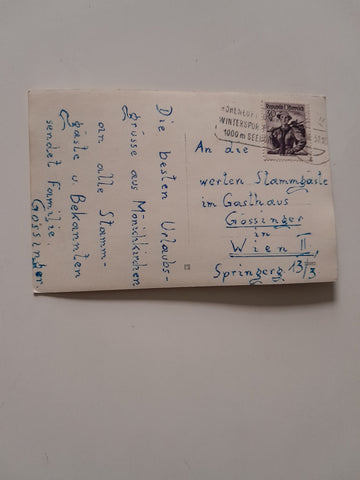 Die besten Urlaubs-
grüsse aus Mönichkirchen
an alle Stamm-
gäste u. Bekannten
sendet Familie
Gössinger
WINTERSPOR
1000 m SEE
Republik Österreich
An die
werten Stammgäste
im Gasthaus
Gössinger
in
Wien II,
Springerg. 13/3